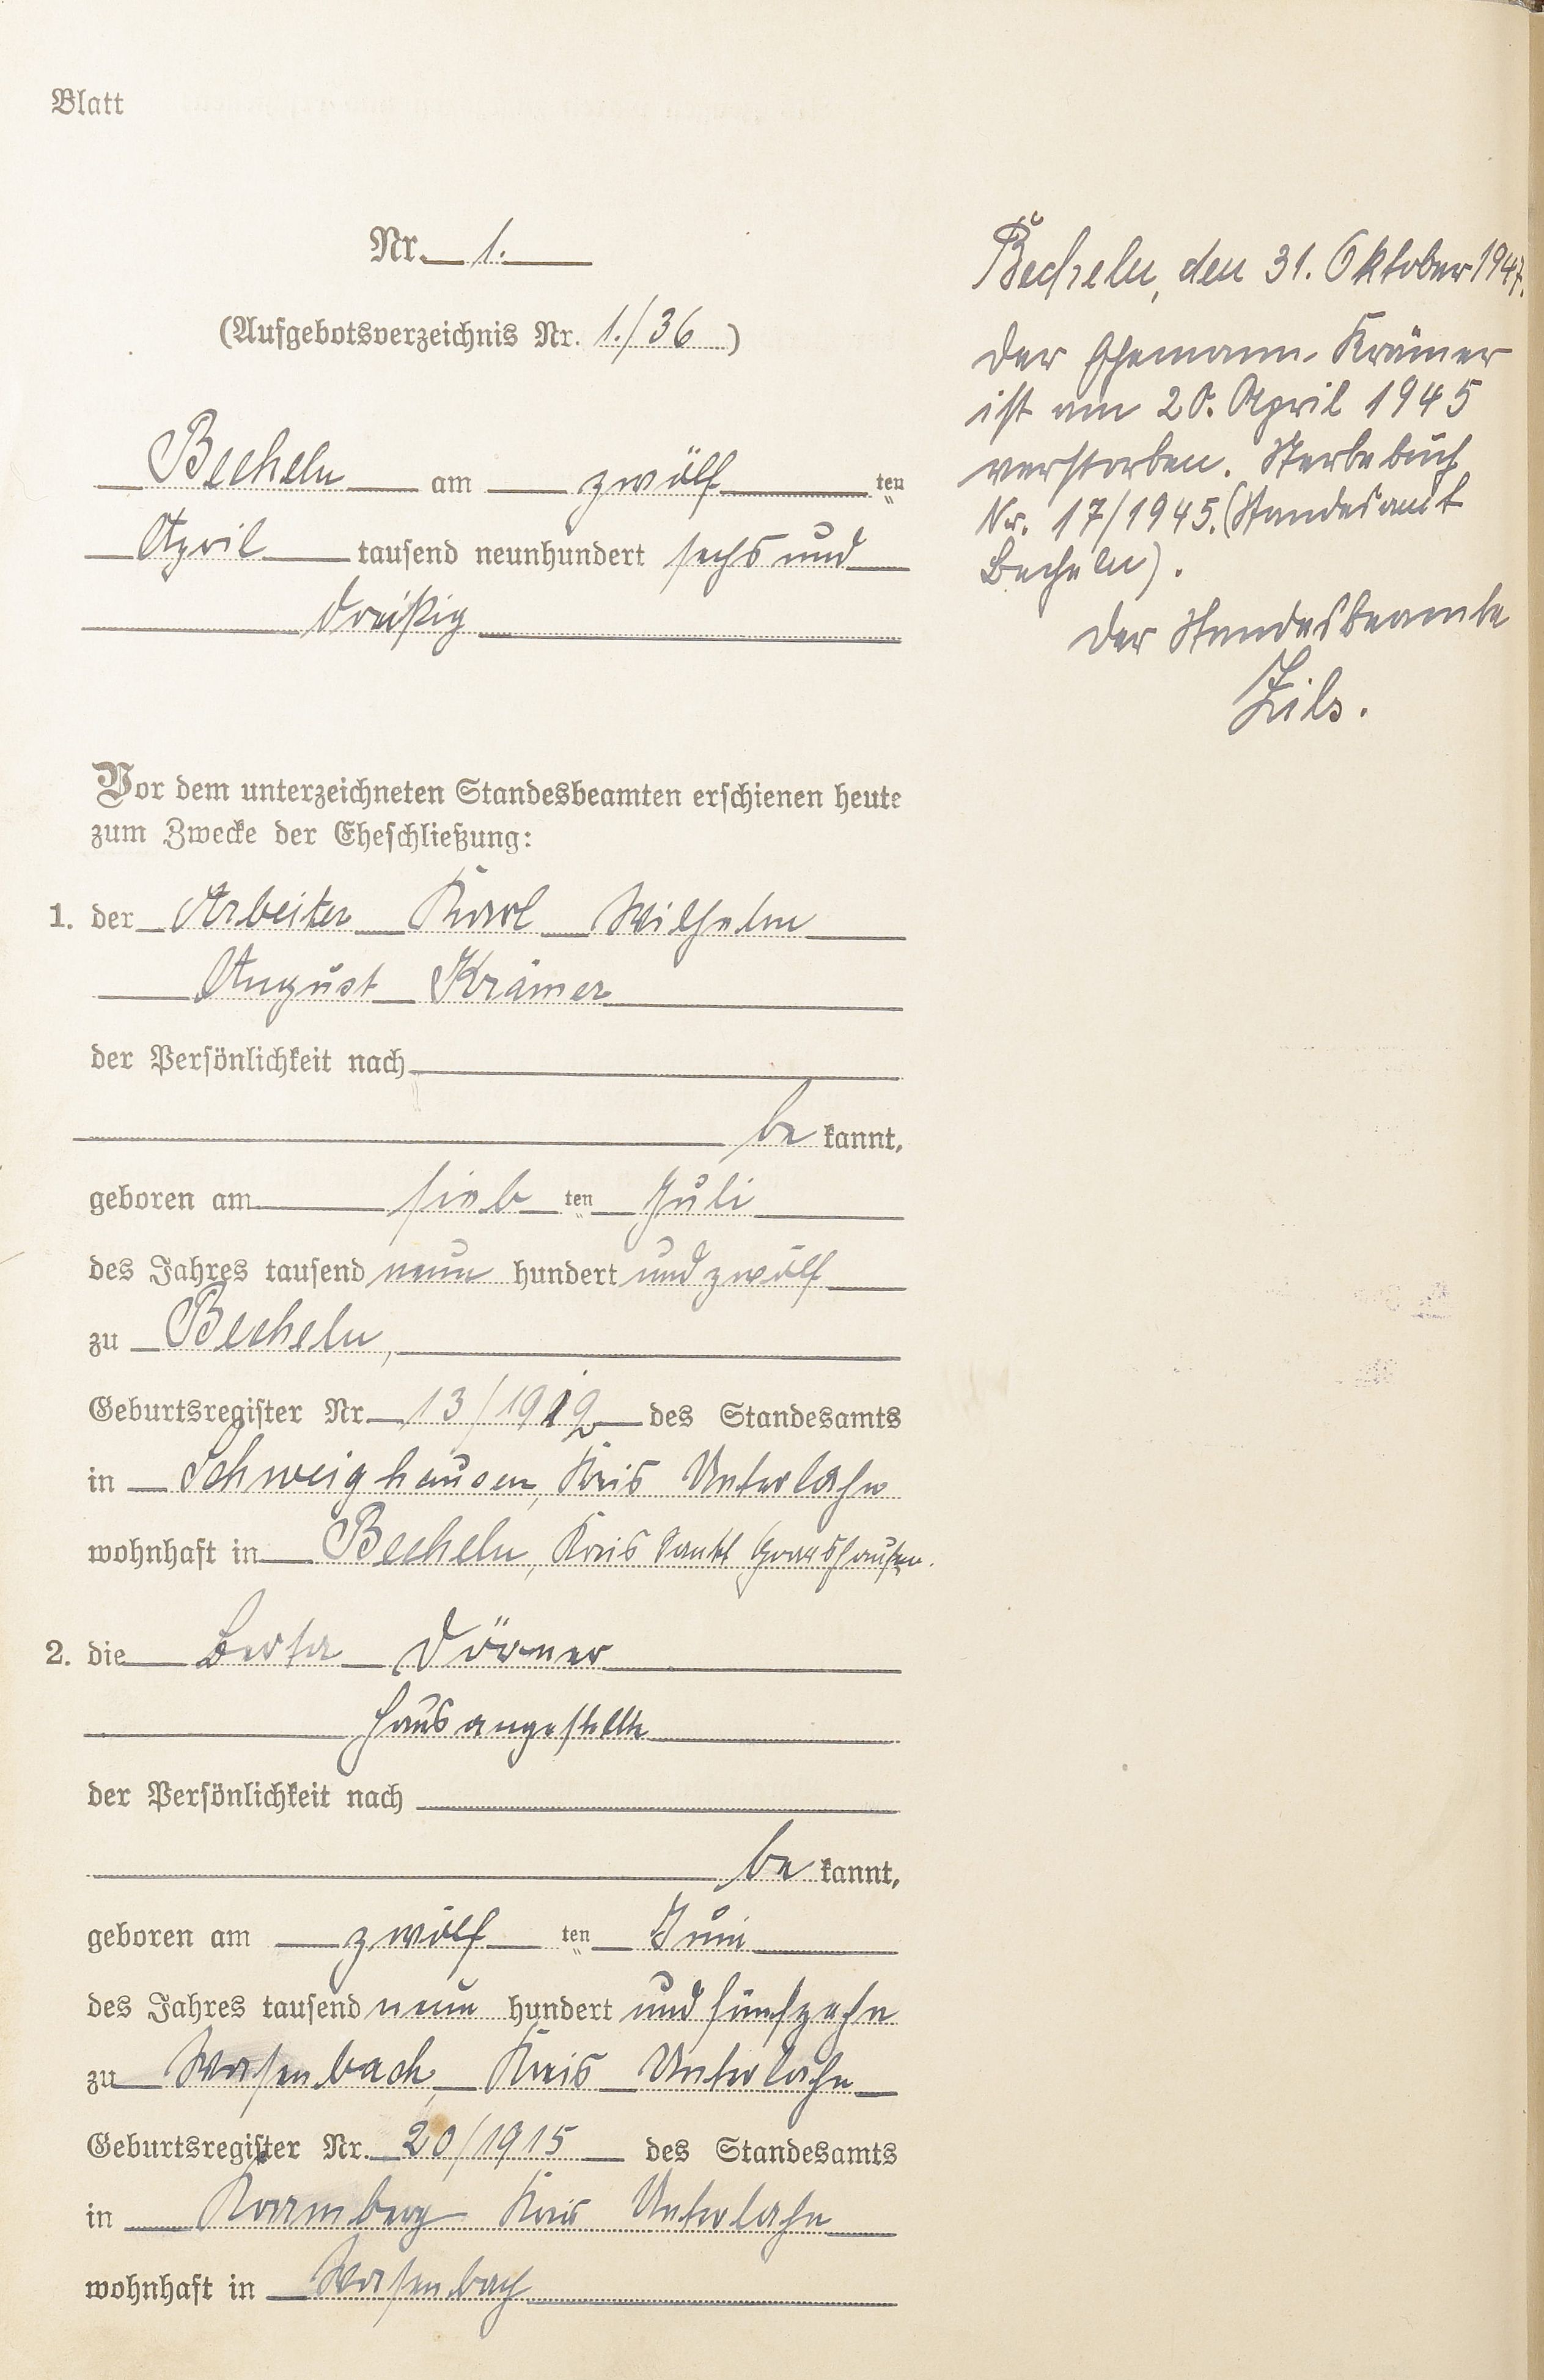 Blatt
Nr. 1.
(Aufgebotsverzeichnis Nr. 1./36)
Becheln am zwölf ten
April tausend neunhundert sechs und
dreißig
Vor dem unterzeichneten Standesbeamten erschienen heute
zum Zwecke der Eheschließung:
1. der Arbeiter Karl Wilhelm
August Krämer
der Persönlichkeit nach
be kannt,
geboren am sieb ten Juli
des Jahres tausend neun hundert und zwölf
zu Becheln,
Geburtsregister Nr. 13/1912 des Standesamts
in Schweighausen, Kreis Unterlahn
wohnhaft in Becheln, Kreis Sankt Goarshausen.
2. die Berta Dörner
Hausangestellte
der Persönlichkeit nach
be kannt,
geboren am zwölf ten Juni
des Jahres tausend neun hundert und fünfzehn
zu Wasenbach, Kreis Unterlahn
Geburtsregister Nr. 20/1915 des Standesamts
in Kreis Unterlahn
wohnhaft in Wasenbach
Becheln, den 31. Oktober 1947.
Der Ehemann Krämer
ist am 20. April 1945
verstorben. Sterbebuch
Nr. 17/1945. (Standesamt
Becheln).
Der Standesbeamte
Zils.